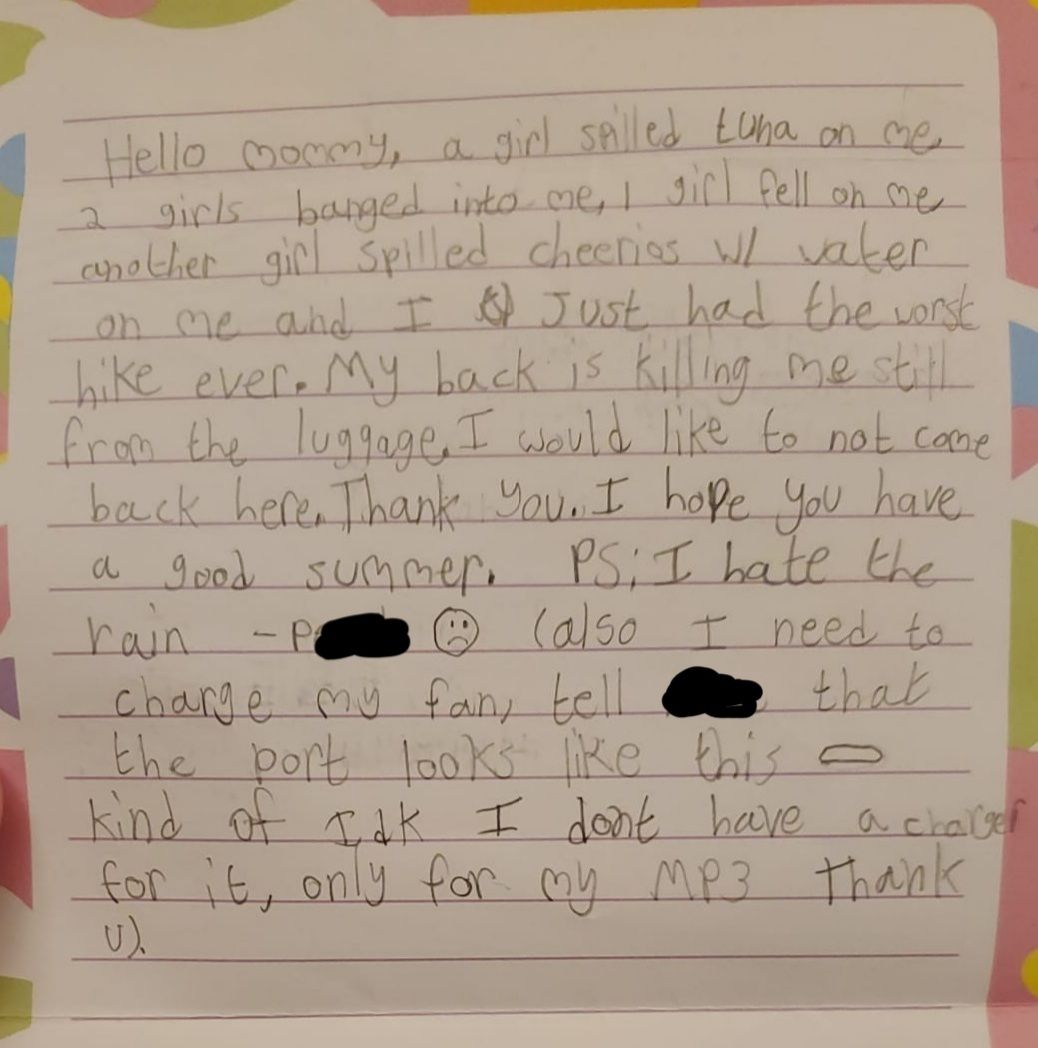 Hello mommy, a girl spilled tuna on me,
2 girls banged into me, 1 girl fell on me
another girl spilled cheerios w/ water
on me and I Just had the worst
hike ever. My back is killing me still
from the luggage. I would like to not come
back here. Thank you. I hope you have
a good summer. PS: I hate the
rain - P ☹ (also I need to
charge my fan, tell that
the port looks like this ⬭
kind of Idk I dont have a charger
for it, only for my MP3 Thank
U).